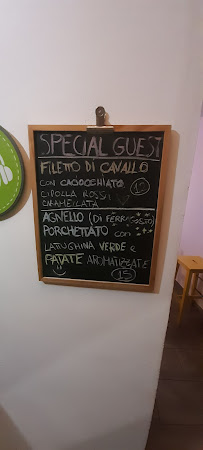 SPECIAL GUEST
FILETTO DI CAVALLO
CON CACIOCCHIATO 15
CIPOLLA ROSSA
CARAMELLATA
AGNELLO (DI FERRAGOSTO)
PORCHETTATO CON
LATTUGHINA VERDE E
PATATE AROMATIZZATE
15